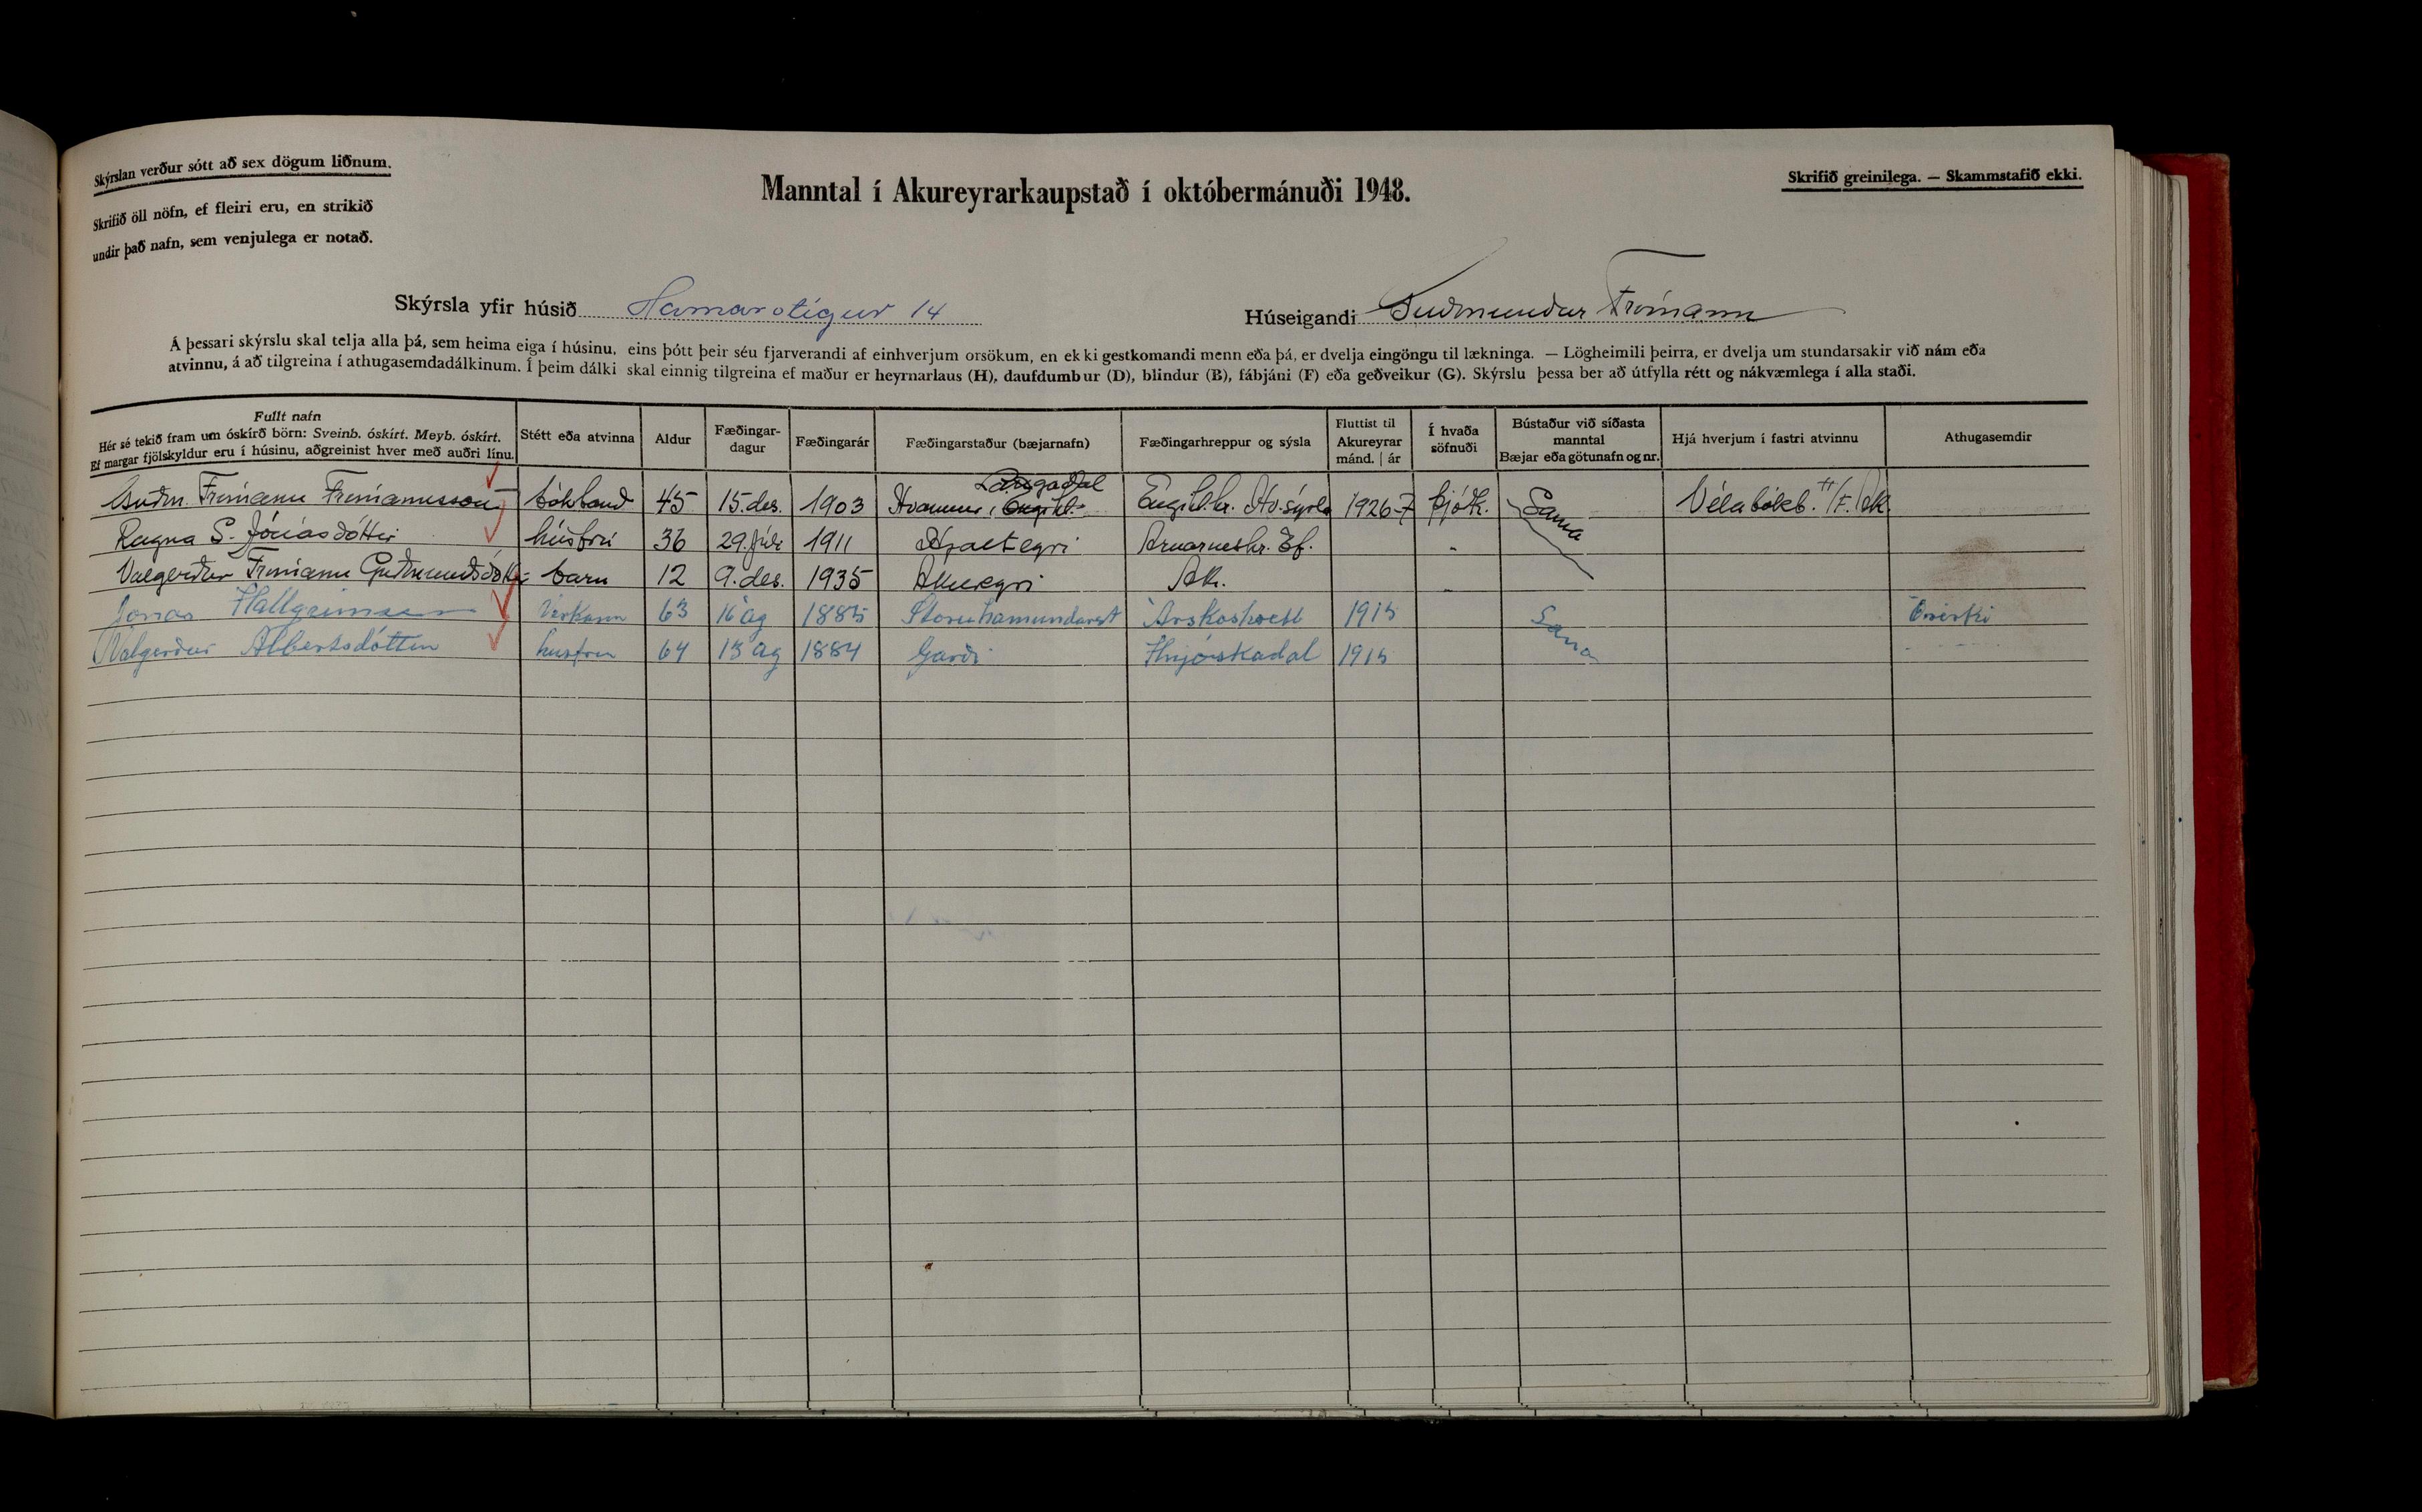 Skýrslan verður sótt að sex dögum liðnum.
Skrifið öll nöfn, ef fleiri eru, en strikið
undir það nafn, sem venjulega er notað.
Manntal í Akureyrarkaupstað í októbermánuði 1948.
Skrifið greinilega. — Skammstafið ekki.
Skýrsla yfir húsið Hamarstígur 14
Húseigandi Guðmundur Frímann
Á þessari skýrslu skal telja alla þá, sem heima eiga í húsinu, eins þótt þeir séu fjarverandi af einhverjum orsökum, en ekki gestkomandi menn eða þá, er dvelja eingöngu til lækninga. — Lögheimili þeirra, er dvelja um stundarsakir við nám eða
atvinnu, á að tilgreina í athugasemdadálkinum. Í þeim dálki skal einnig tilgreina ef maður er heyrnarlaus (H), daufdumbur (D), blindur (B), fábjáni (F) eða geðveikur (G). Skýrslu þessa ber að útfylla rétt og nákvæmlega í alla staði.
Fullt nafn
Hér sé tekið fram um óskírð börn: Sveinb. óskírt. Meyb. óskírt.
Ef margar fjölskyldur eru í húsinu, aðgreinist hver með auðri línu.
Stétt eða atvinna
Aldur
Fæðingar-
dagur
Fæðingarár
Fæðingarstaður (bæjarnafn)
Fæðingarhreppur og sýsla
Fluttist til
Akureyrar
mánd. | ár
Í hvaða
söfnuði
Bústaður við síðasta
manntal
Bæjar eða götunafn og nr.
Hjá hverjum í fastri atvinnu
Athugasemdir
Guðm. Frímann Frímannsson bókband 45 15. des. 1903 Hvammur, Langadal Engihl.hr. Hv.sýsla 1926-7 þjóðk. Sama Vélabókb. H/F. Ak.
Ragna S. Jónasdóttir húsfrú 36 29. júlí 1911 Hjalteyri Arnarneshr. Ef. "
Valgerður Frímann Guðmundsdótt. barn 12 9. des. 1935 Akureyri Ak. "
Jónas Hallgrimsson Verkam 63 16 ag 1885 Storuhamundarst Árskoshrebb 1915 Sama
Valgerður Albertsdóttir husfru 64 15 ag 1884 Garði Hnjóskadal 1915